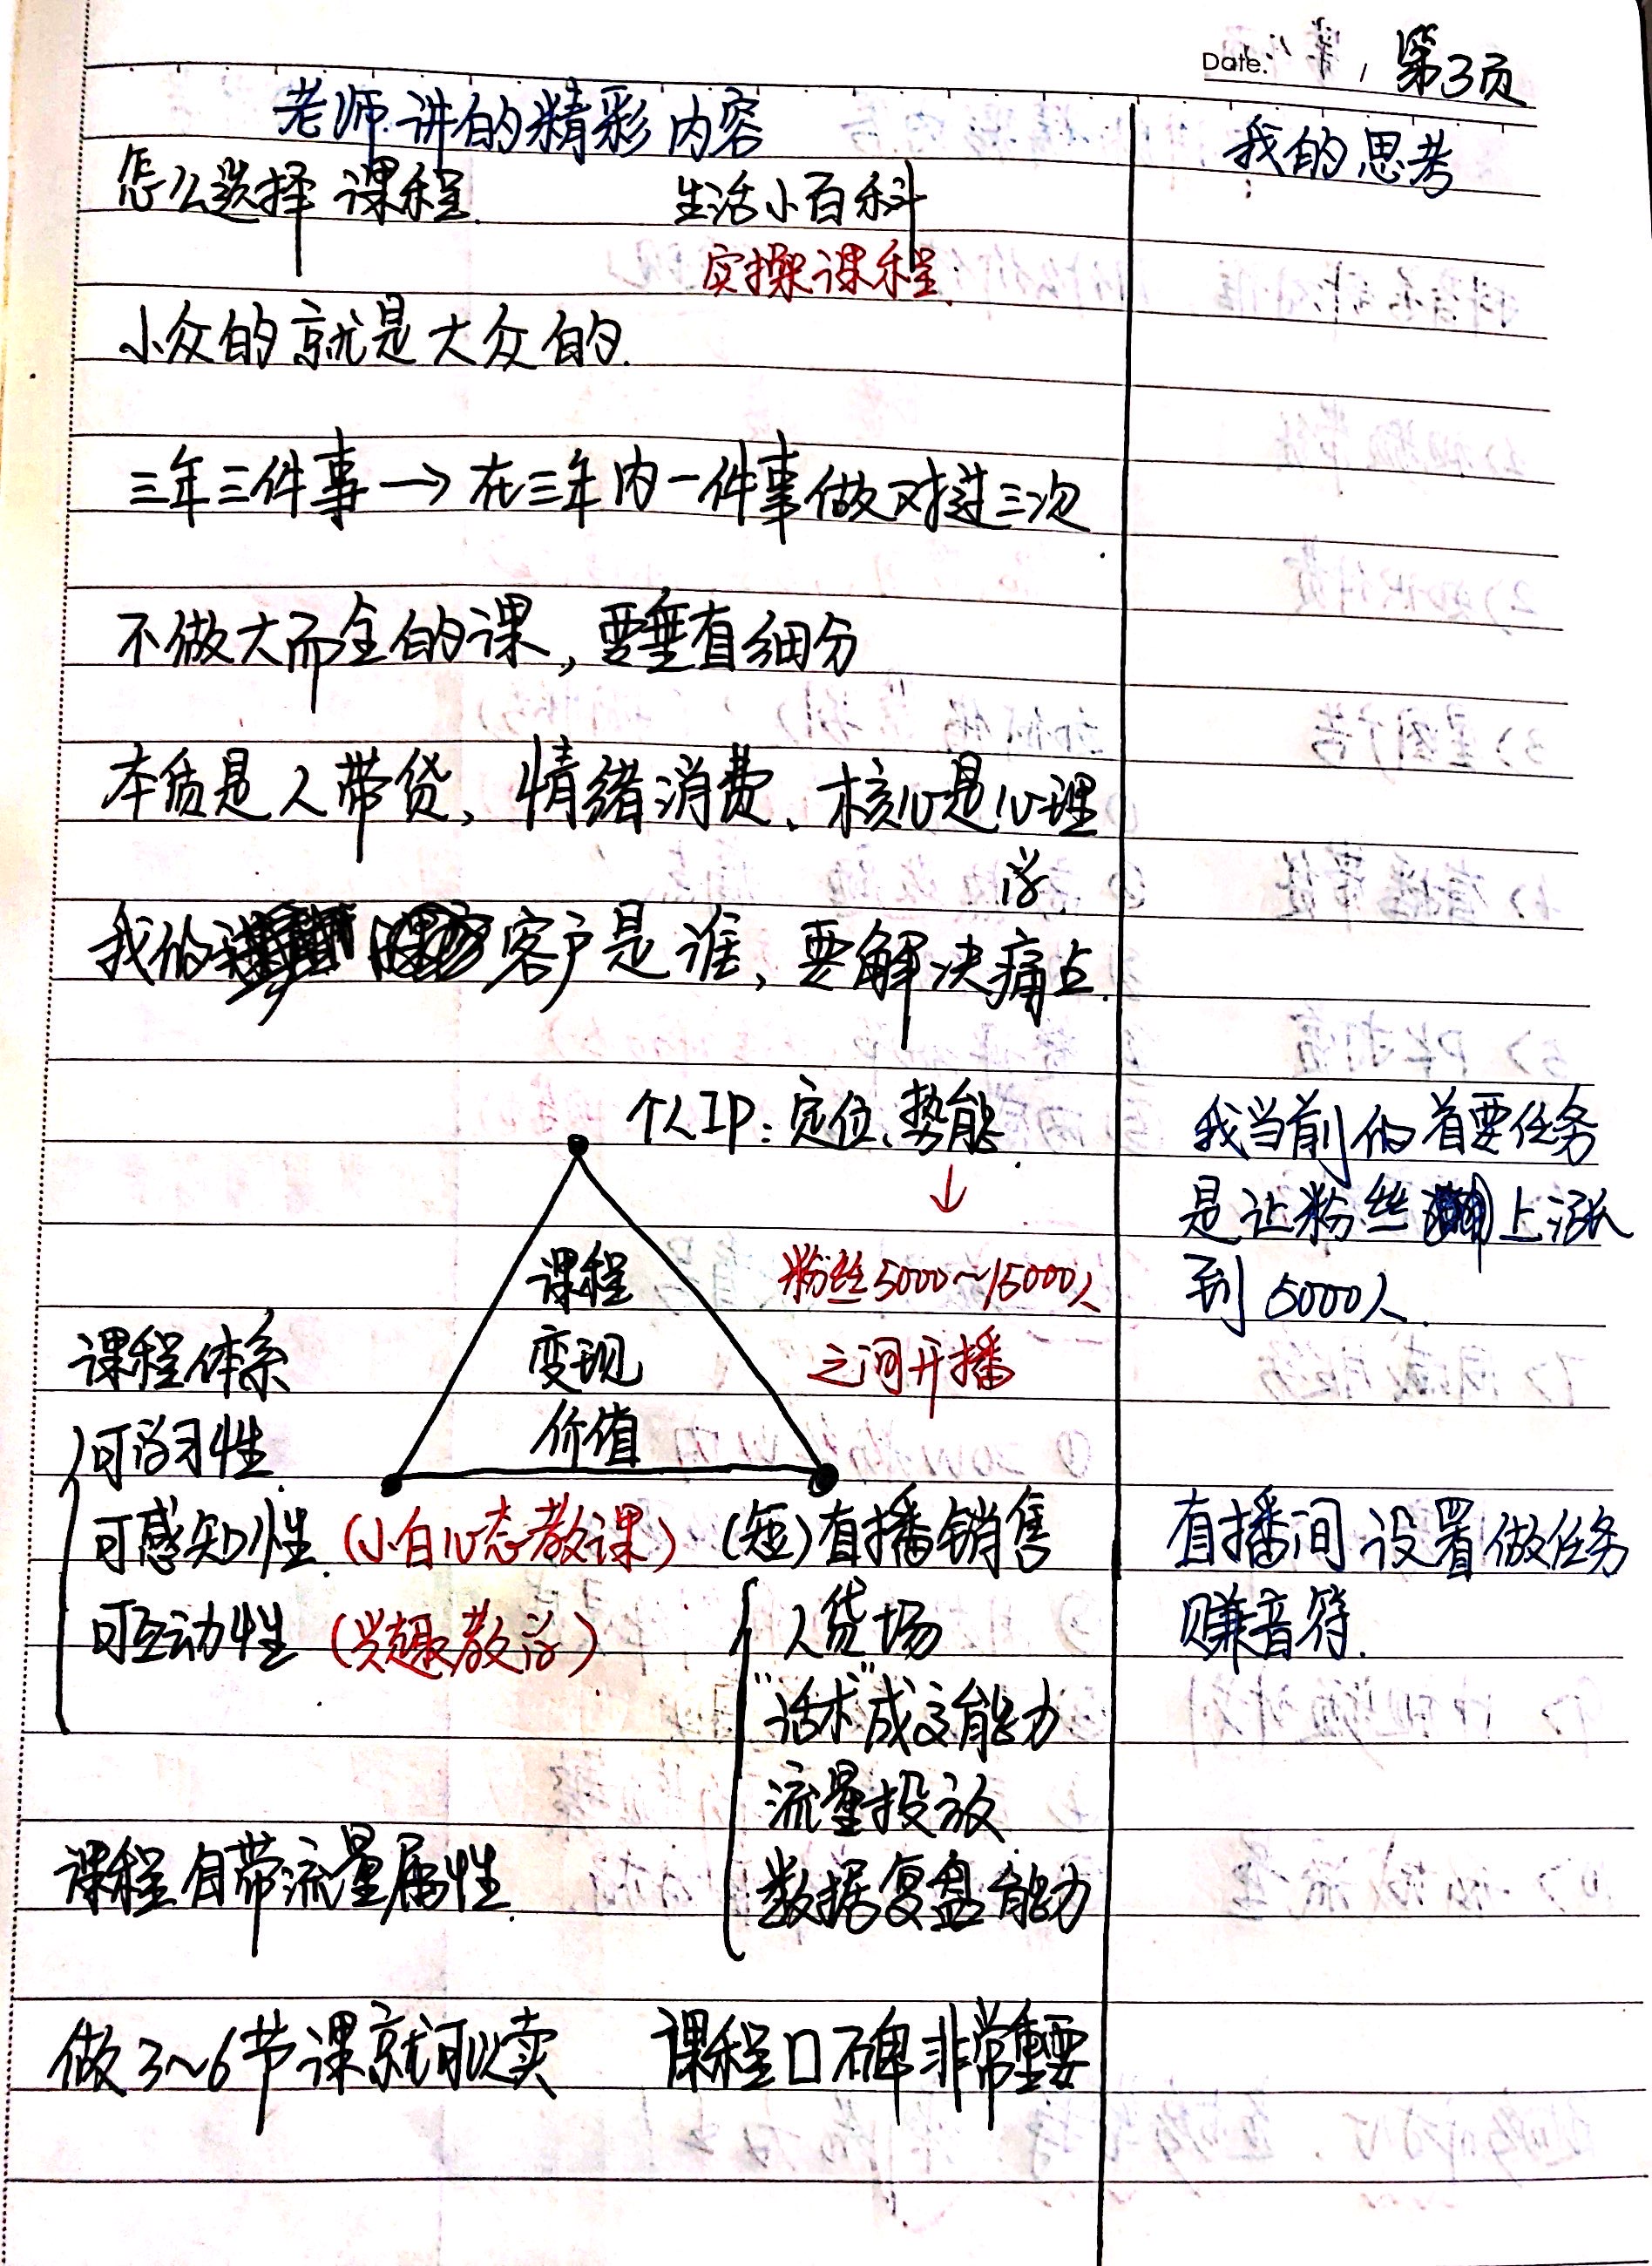 Date: 第3页
老师讲的精彩内容
我的思考
怎么选择课程
生活小百科
实操课程
小众的就是大众的.
三年三件事→在三年内一件事做对过三次
不做大而全的课,要垂直细分
本质是人带货、情绪消费、核心是心理
学
我的 客户是谁,要解决痛点.
个人IP:定位、势能
↓
粉丝5000~15000人
之间开播
我当前的首要任务
是让粉丝 上涨
到5000人.
课程
变现
价值
课程体系
可学习性
可感知性 (小白心态教课)
可互动性 (兴趣教学)
(短)直播销售
人货场
"话术"成交能力
流量投放
数据复盘能力
直播间设置做任务
赚音符.
课程自带流量属性
做3~6节课就可以卖 课程口碑非常重要